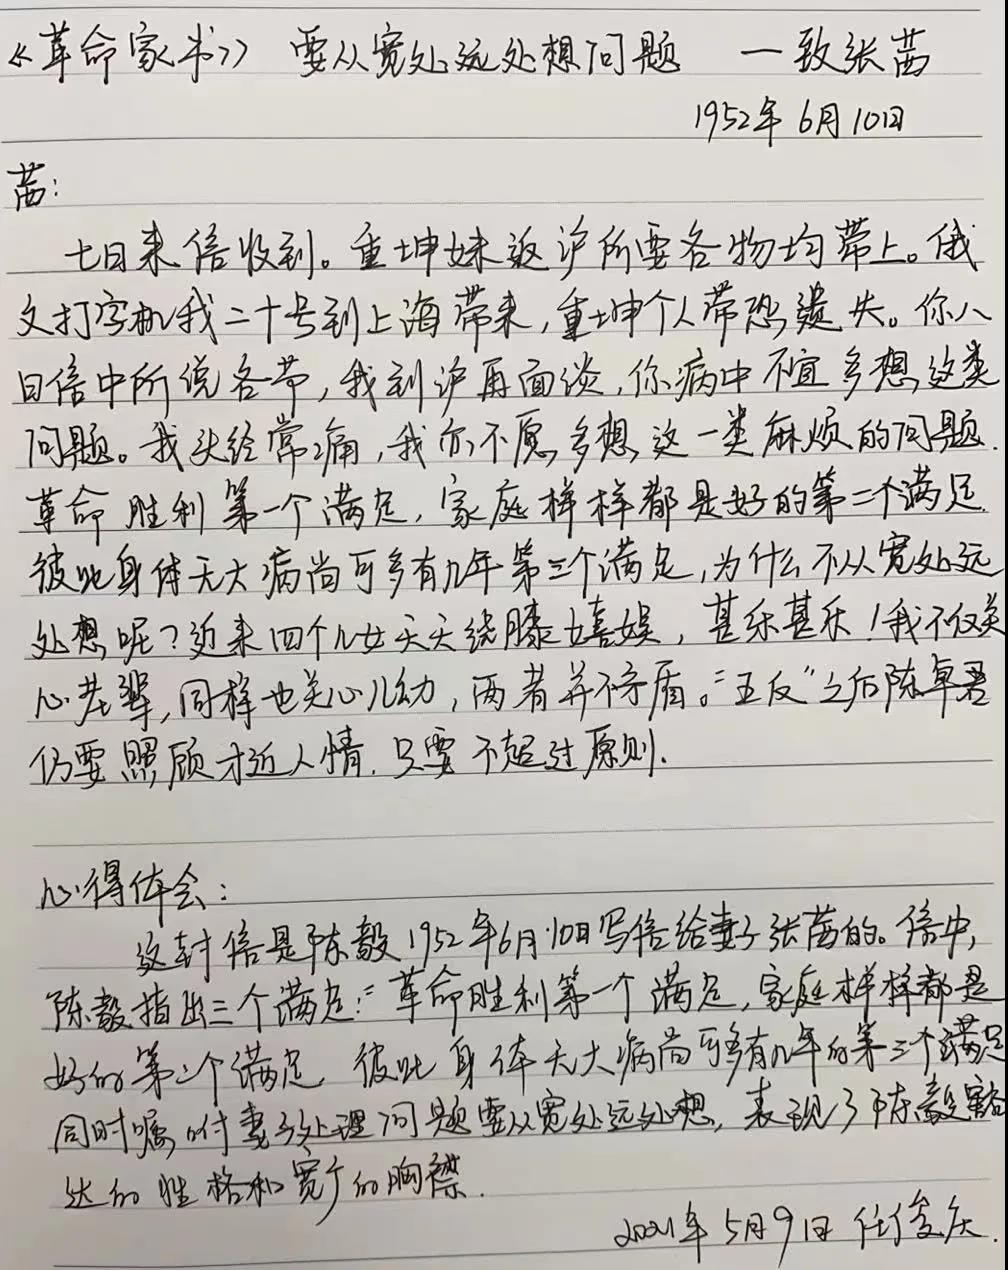 《革命家书》 要从宽处远处想问题 一致张茜
1952年6月10日
茜:
七日来信收到。重坤妹返沪所要各物均带上。俄
文打字机我二十号到上海带来,重坤个人带恐遗失。你八
日信中所说各节,我到沪再面谈,你病中不宜多想这类
问题。我头经常痛,我亦不愿多想这一类麻烦的问题.
革命胜利第一个满足,家庭样样都是好的第二个满足.
彼此身体无大病尚可多有几年第三个满足,为什么不从宽处远
处想呢?近来四个儿女天天绕膝嬉娱,甚乐甚乐!我不仅关
心老辈,同样也关心儿幼,两者并不矛盾。“五反”之后陈卓君
仍要照顾才近人情.只要不超过原则.
心得体会:
这封信是陈毅1952年6月10日写信给妻子张茜的。信中,
陈毅指出三个满足:“革命胜利第一个满足,家庭样样都是
好的第二个满足 彼此身体无大病尚可多有几年的第三个满足
同时嘱咐妻子处理问题要从宽处远处想,表现了陈毅豁
达的性格和宽广的胸襟.
2021年5月9日 任俊庆.